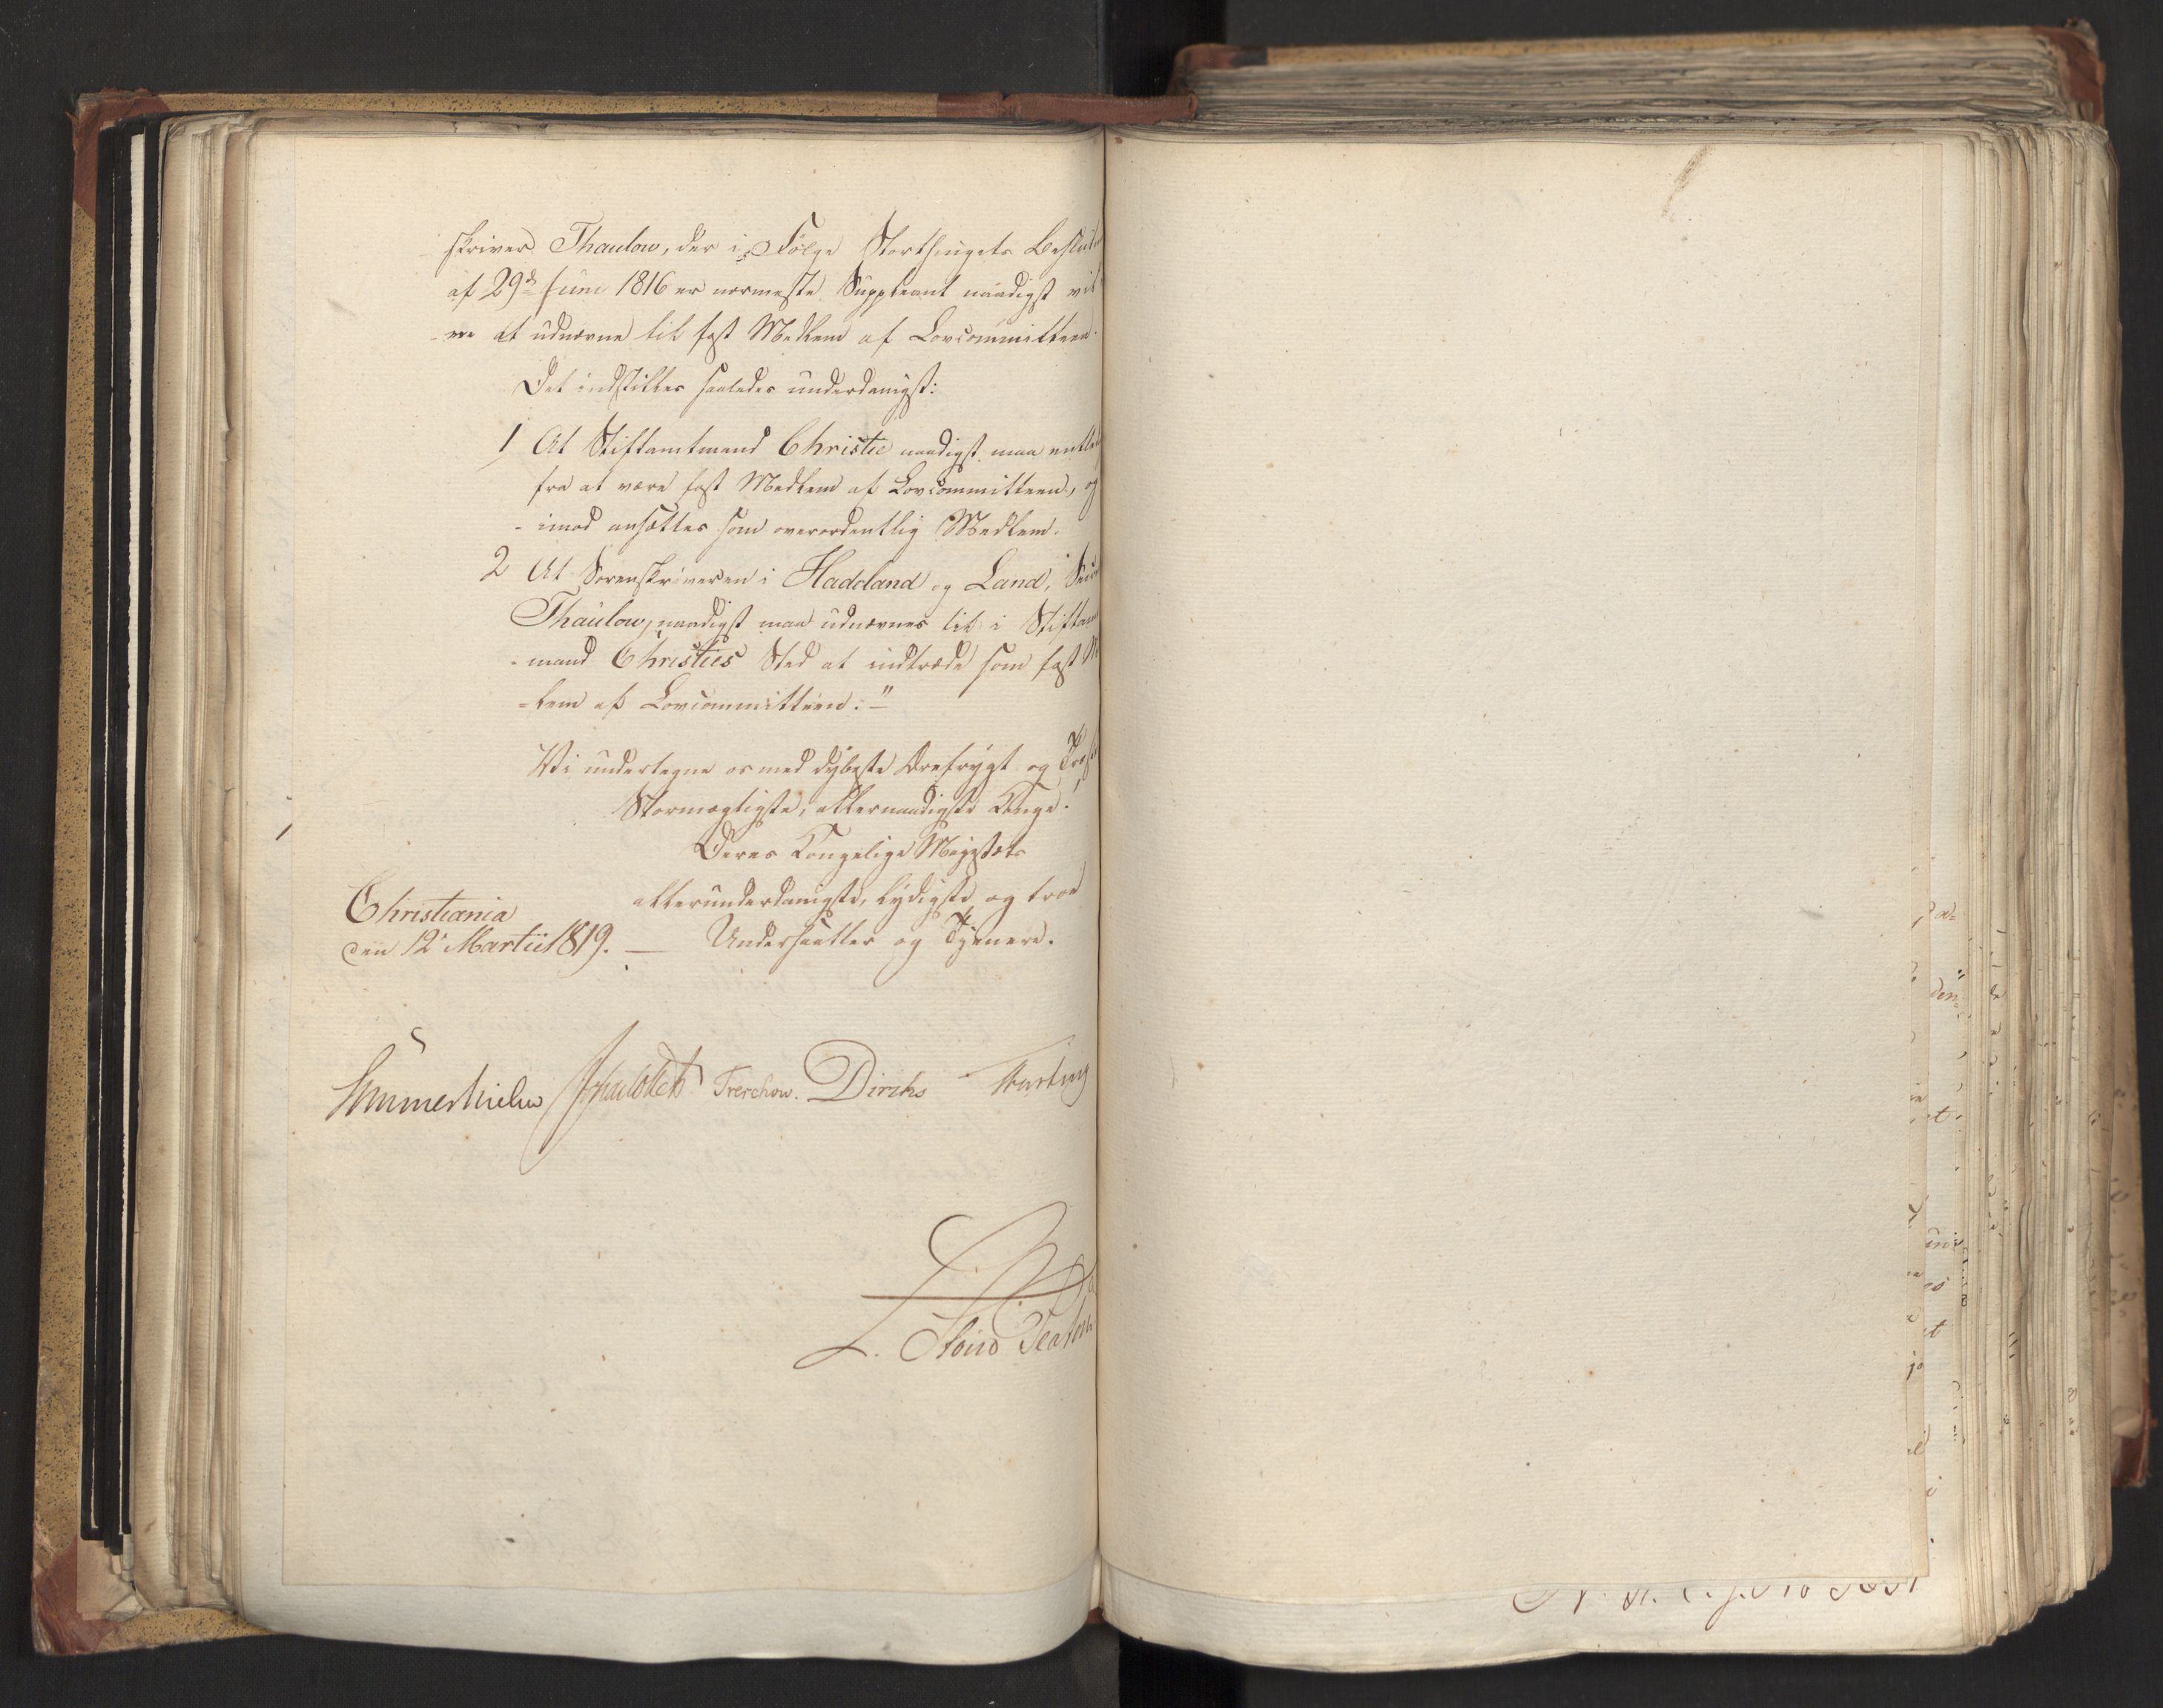 skriver Thaulow, der i Følge Storthingets Beslut
af 29de Juni 1816 er nærmeste Suppleant naadigst vil
-re at udnævne til fast Medlem af Lovcommitteen.
Det indstilles saaledes underdanigst:
1 At Stiftamtmand Christie naadigst maa entle
fra at være fast Medlem af Lovcommitteen, og
- imod ansættes som overordentlig Medlem.
2 At Sorenskriveren i Hadeland og Land,
Thaulow, naadigst maa udnævnes til i Stiftam
- mand Christies Sted at indtræde som fast Me
=lem af Lovcommitteen."
Vi undertegne os med dybeste Ærefrygt og Troskab
Stormægtigste, allernaadigste Konge!
Deres Kongelige Majestæts
allerunderdanigste, lydigste og troe
Undersaatter og Tjenere.
Christiania
den 12 Martii 1819. —
Sommerhielm Treschow. Diriks